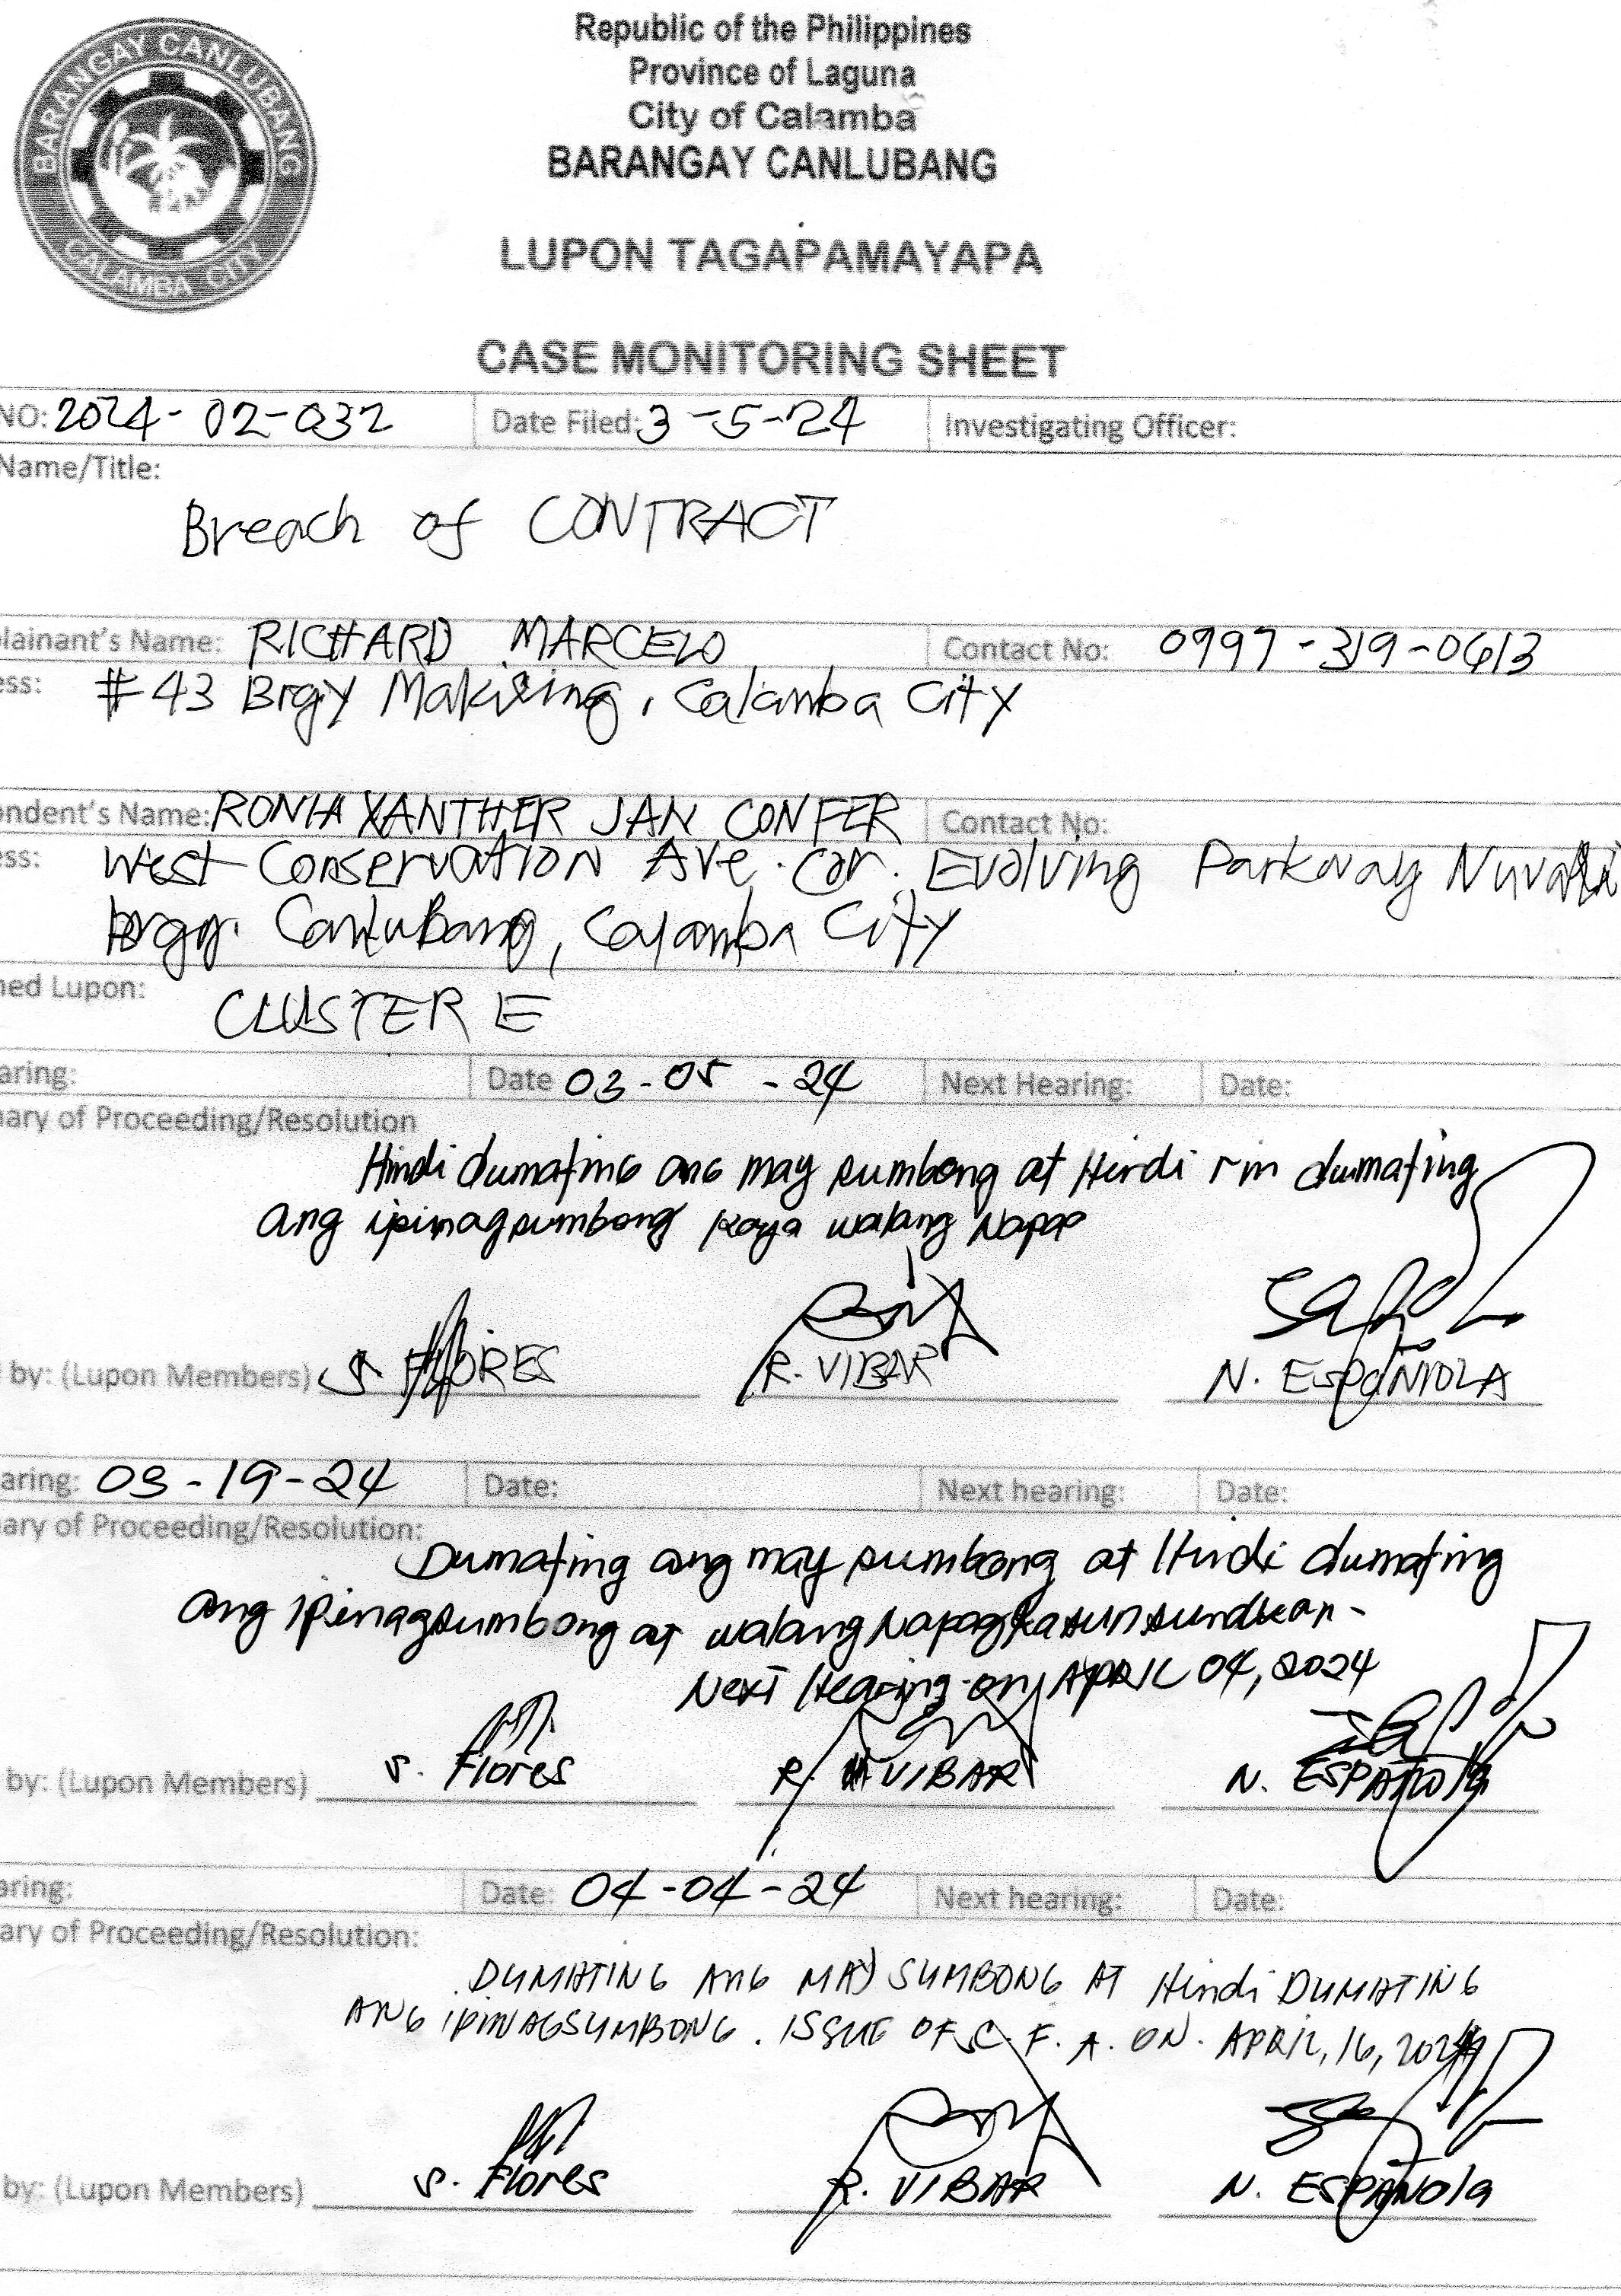 BARANGAY CANLUBANG
CALAMBA CITY
Republic of the Philippines
Province of Laguna
City of Calamba
BARANGAY CANLUBANG
LUPON TAGAPAMAYAPA
CASE MONITORING SHEET
NO: 2024-02-032 Date Filed: 3-5-24 Investigating Officer:
Name/Title:
Breach of CONTRACT
lainant's Name: RICHARD MARCELO Contact No: 0997-319-0613
ess: #43 Brgy Makiling, Calamba City
ondent's Name: XANTHER JAN CONFER Contact No:
ess: West Conservation Ave. cor. Evolving Parkway Nuvali
brgy. Canlubang, Calamba City
ned Lupon: CLUSTER E
aring: Date 03-05-24 Next Hearing: Date:
nary of Proceeding/Resolution
Hindi dumating ang may sumbong at Hindi rin dumating
ang ipinagsumbong kaya walang Napag
by: (Lupon Members) S. FLORES R. VIBAR N. ESPAÑOLA
aring: 03-19-24 Date: Next hearing: Date:
ary of Proceeding/Resolution:
Dumating ang may sumbong at Hindi dumating
ang ipinagsumbong at walang Napagkasunsundkan-
Next Hearing on APRIL 04, 2024
by: (Lupon Members) S. Flores R. VIBAR N. ESPAÑOla
aring: Date: 04-04-24 Next hearing: Date:
ary of Proceeding/Resolution:
DUMATING ANG MAY SUMBONG AT Hindi DUMATING
ANG IPINAGSUMBONG. ISSUE OF C.F.A. ON. APRIL, 16, 2024
by: (Lupon Members) S. Flores R. VIBAR N. ESPAÑOla